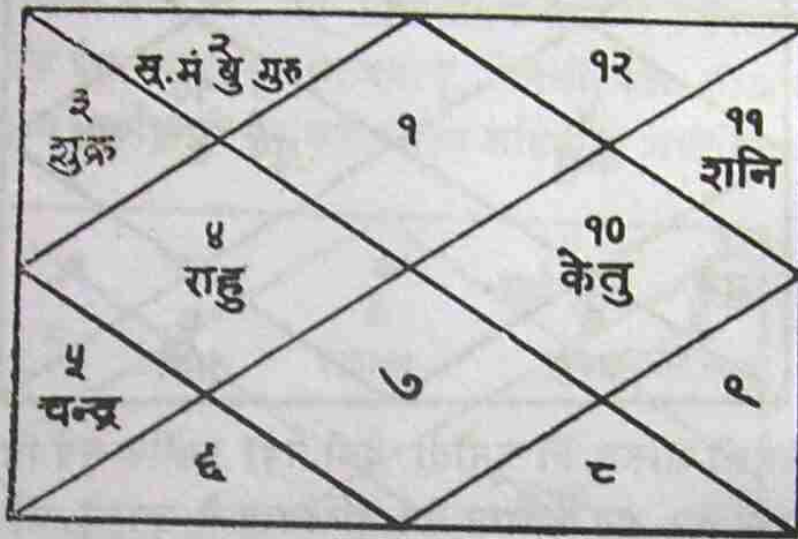 २
सू. मं बु गुरु
१२
३
शुक्र
१
११
शनि
४
राहु
१०
केतु
५
चन्द्र
७
९
६
८